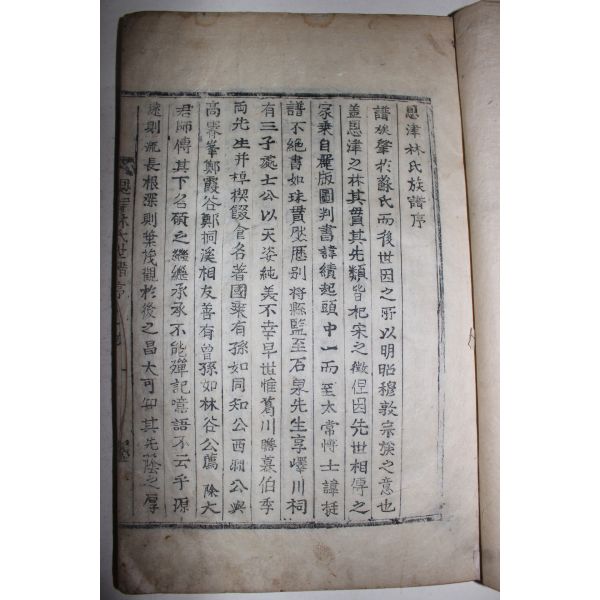 恩津林氏族譜序
譜族肇於蘇氏而後世因之所以明昭穆敦宗族之意也
盖恩津之林其貫其先類皆杞宋之徵但因先世相傳之
家乗自麗版圖判書諱績起頭中一而至太常博士諱挺
譜不絶書如珠貫歷別将縣監至石泉先生享嶧川祠
有三子處士公以天姿純美不幸早世惟葛川瞻慕伯季
両先生并棹楔餟食名著國乗有孫如同知公西澗公與
高霽峯鄭霞谷鄭桐溪相友善有曽孫如林谷公薦除大
君師傳其下名碩之繼繼承承不能殫記噫語不云乎源
遠則流長根深則葉茂觀於後之昌大可知其先蔭之厚
恩津林氏世譜序